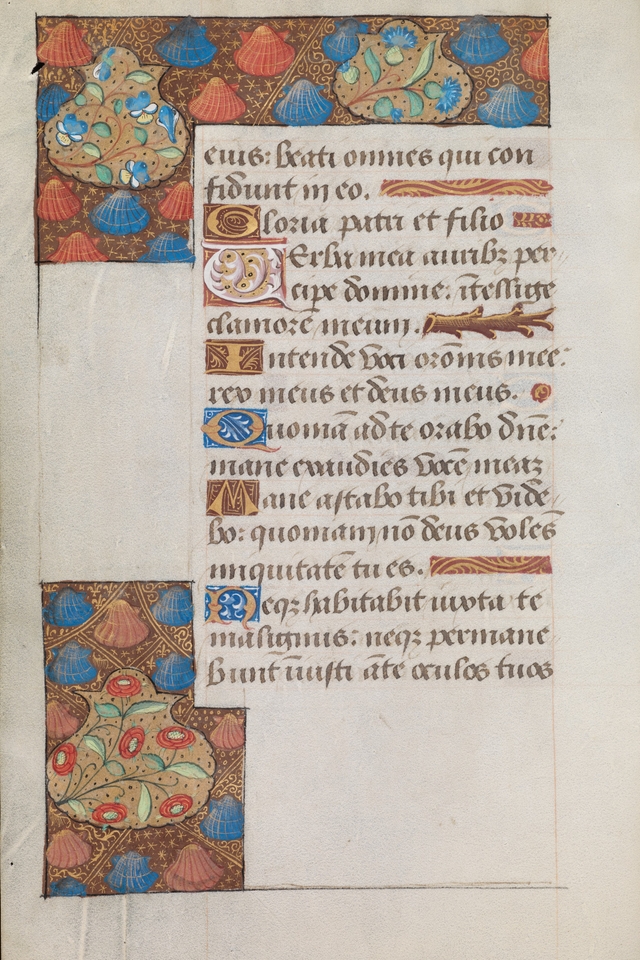 eius: beati omnes qui con
fidunt in eo.
Gloria patri et filio
Verba mea auribꝫ per
cipe domine: ītellige
clamorē meum.
Intende voci orōnis mee:
rex meus et deus meus.
Quoniā ad te orabo dn̄e:
mane exaudies vocē meaꝫ
Mane astabo tibi et vide
bo: quoniam nō deus volēs
iniquitatē tu es.
Neqꝫ habitabit iuxta te
malignus: neqꝫ permane
bunt īiusti āte oculos tuos